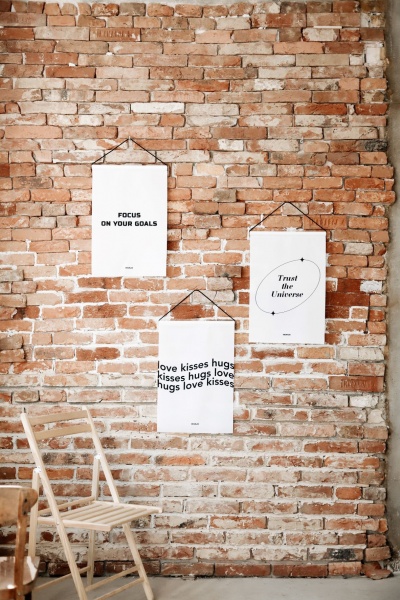 FOCUS
ON YOUR GOALS
Trust
the
Universe
love kisses hugs
kisses hugs love
hugs love kisses